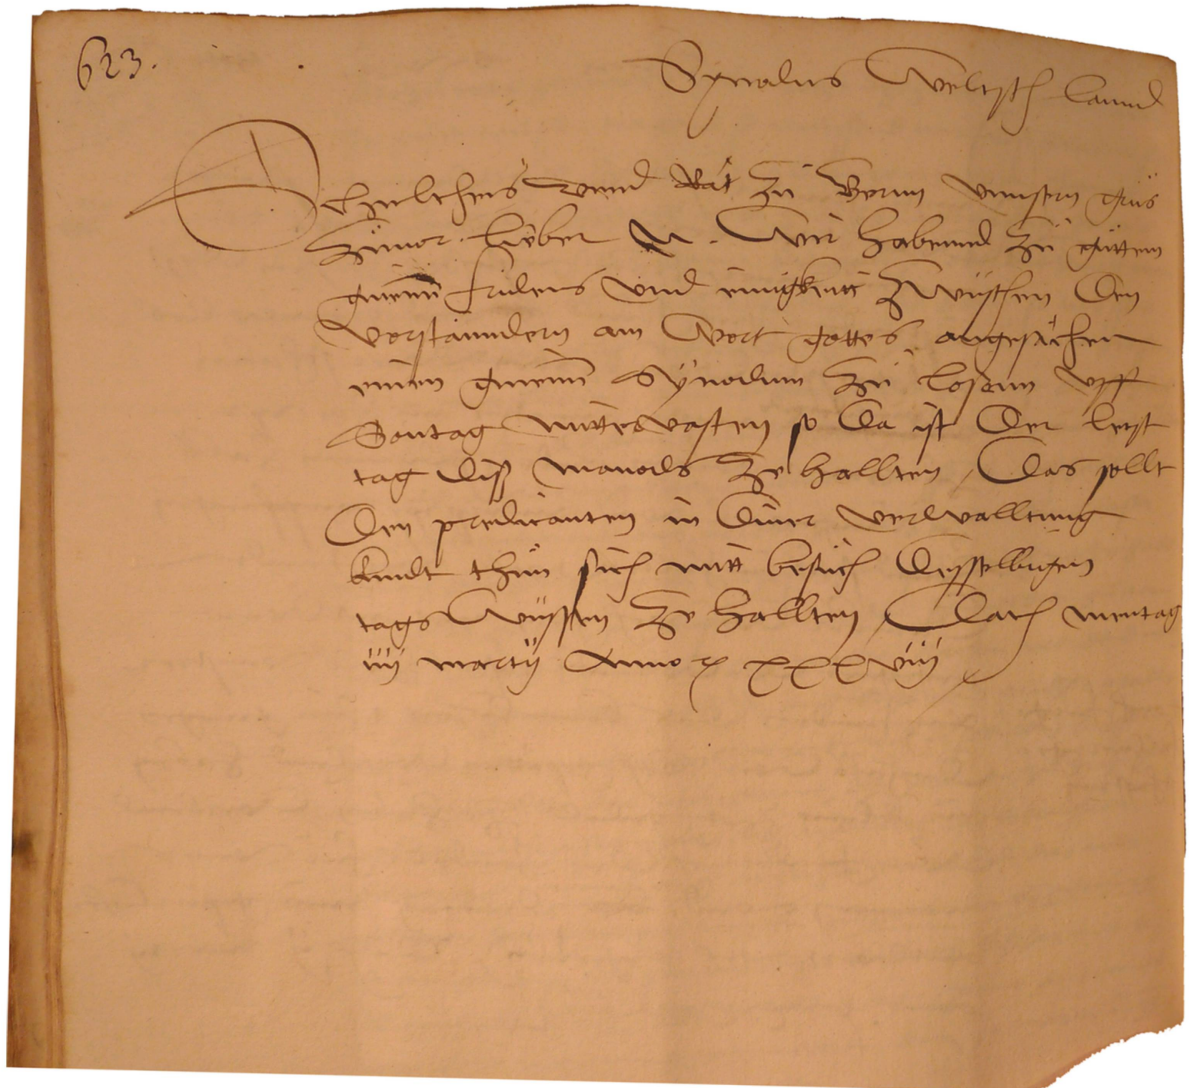 623.
Synodus Weltsch lannd
Schulthes vnnd Rät zů Bernn vnnsern grůs
zůuor. lieber N. Wir habennd zů gůttem
gmeinē fridens vnd einigkeitt zwüschen den
vorstånndern am Wort gottes angesächen
einen gmeinē Synodum zů losann vff
Sontag mitteuasten so da ist der letst
tag diss manods ze hallten, Das sollt
den predicanten in diner verwalltung
kundt thůn sich mitt besůch desselbigen
tags wüssen ze hallten, Dat. mentag
iiij martij Anno xxxviij